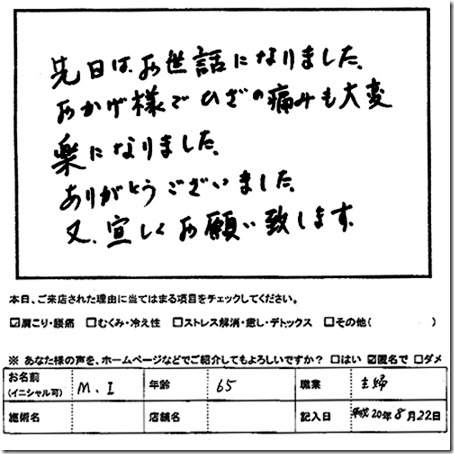 先日は、お世話になりました。
おかげ様でひざの痛みも大変
楽になりました。
ありがとうございました。
又、宜しくお願い致します。
本日、ご来店された理由に当てはまる項目をチェックしてください。
☑肩こり・腰痛 □むくみ・冷え性 □ストレス解消・癒し・デトックス □その他( )
※ あなた様の声を、ホームページなどでご紹介してもよろしいですか? □はい ☑匿名で □ダメ
お名前(イニシャル可) M.I 年齢 65 職業 主婦
施術名 店舗名 記入日 平成20年8月22日